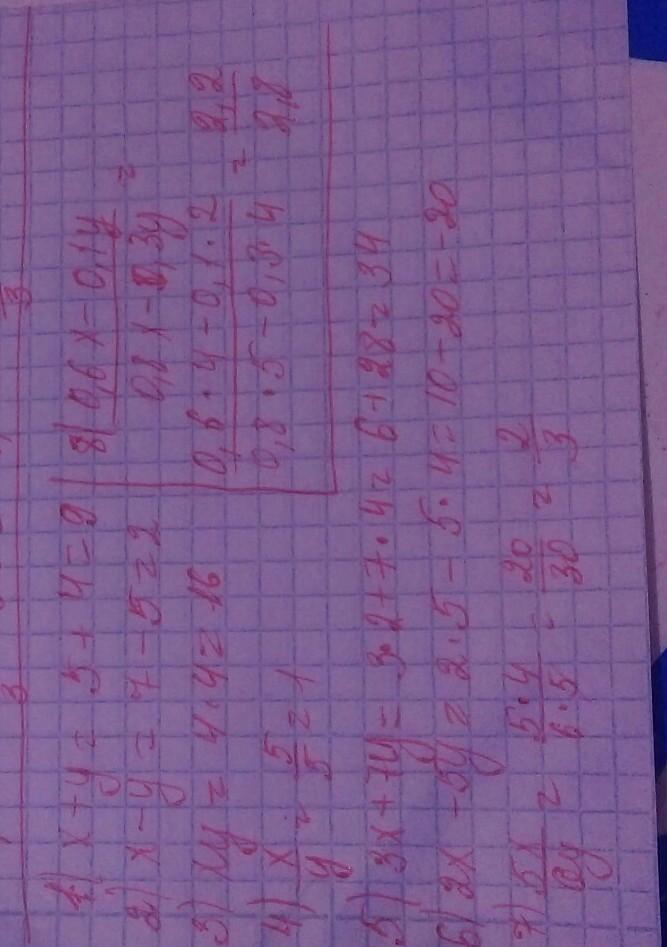 1) x + y = 5 + 4 = 9
2) x - y = 7 - 5 = 2
3) xy = 4 · 4 = 16
4) x/y = 5/5 = 1
5) 3x + 7y = 3·2 + 7·4 = 6 + 28 = 34
6) 2x - 5y = 2·5 - 5·4 = 10 - 20 = -20
7) 5x/6y = 5·4/6·5 = 20/30 = 2/3
8) 0,6x - 0,1y/0,8x - 0,3y =
0,6·4 - 0,1·2/0,8·5 - 0,3·4 = 2,2/2,8